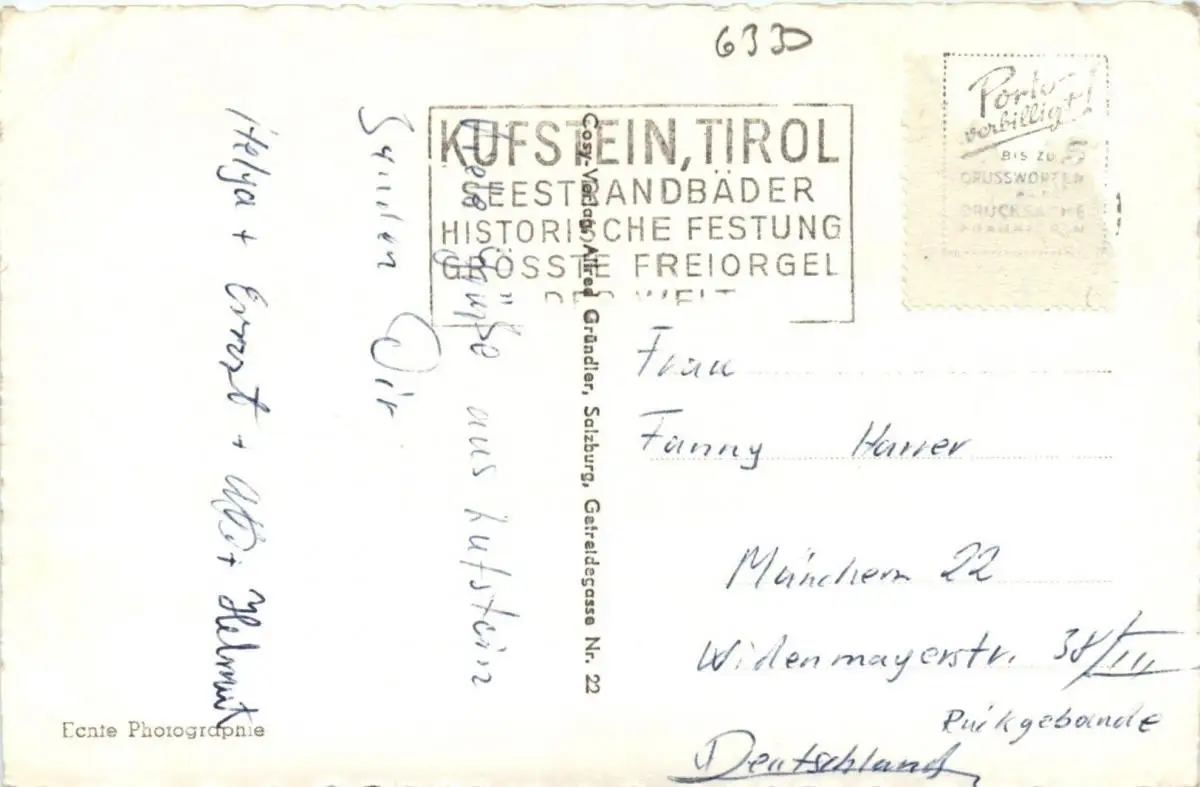 6330
Porto-
verbilligt!
BIS ZU 5
GRUSSWORTEN
ALS
DRUCKSACHE
FRANKIEREN
KUFSTEIN, TIROL
SEESTRANDBÄDER
HISTORISCHE FESTUNG
GRÖSSTE FREIORGEL
DER WELT
Viele Grüße aus Kufstein
Senden Dir
Helga + Ernst + + Helmut
Cosy-Verlag Alfred Gründler, Salzburg, Getreidegasse Nr. 22
Frau
Fanny Harrer
München 22
Widenmayerstr. 38/III
Rückgebäude
Deutschland
Echte Photographie